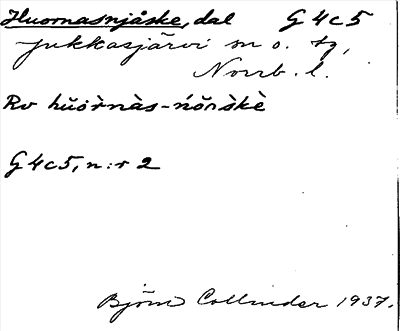 Huornasnjåske, dal G 4 c 5
Jukkasjärvi sn o. tg,
Norrb. l.
Rv hŭŏr̀nàs-ńŏr̀skè
G 4 c 5, n:r 2
Björn Collinder 1937.